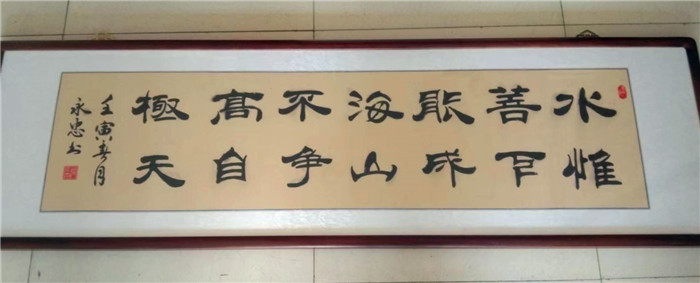 水惟
善下
能成
海山
不争
高自
極天
壬寅春月
永忠书